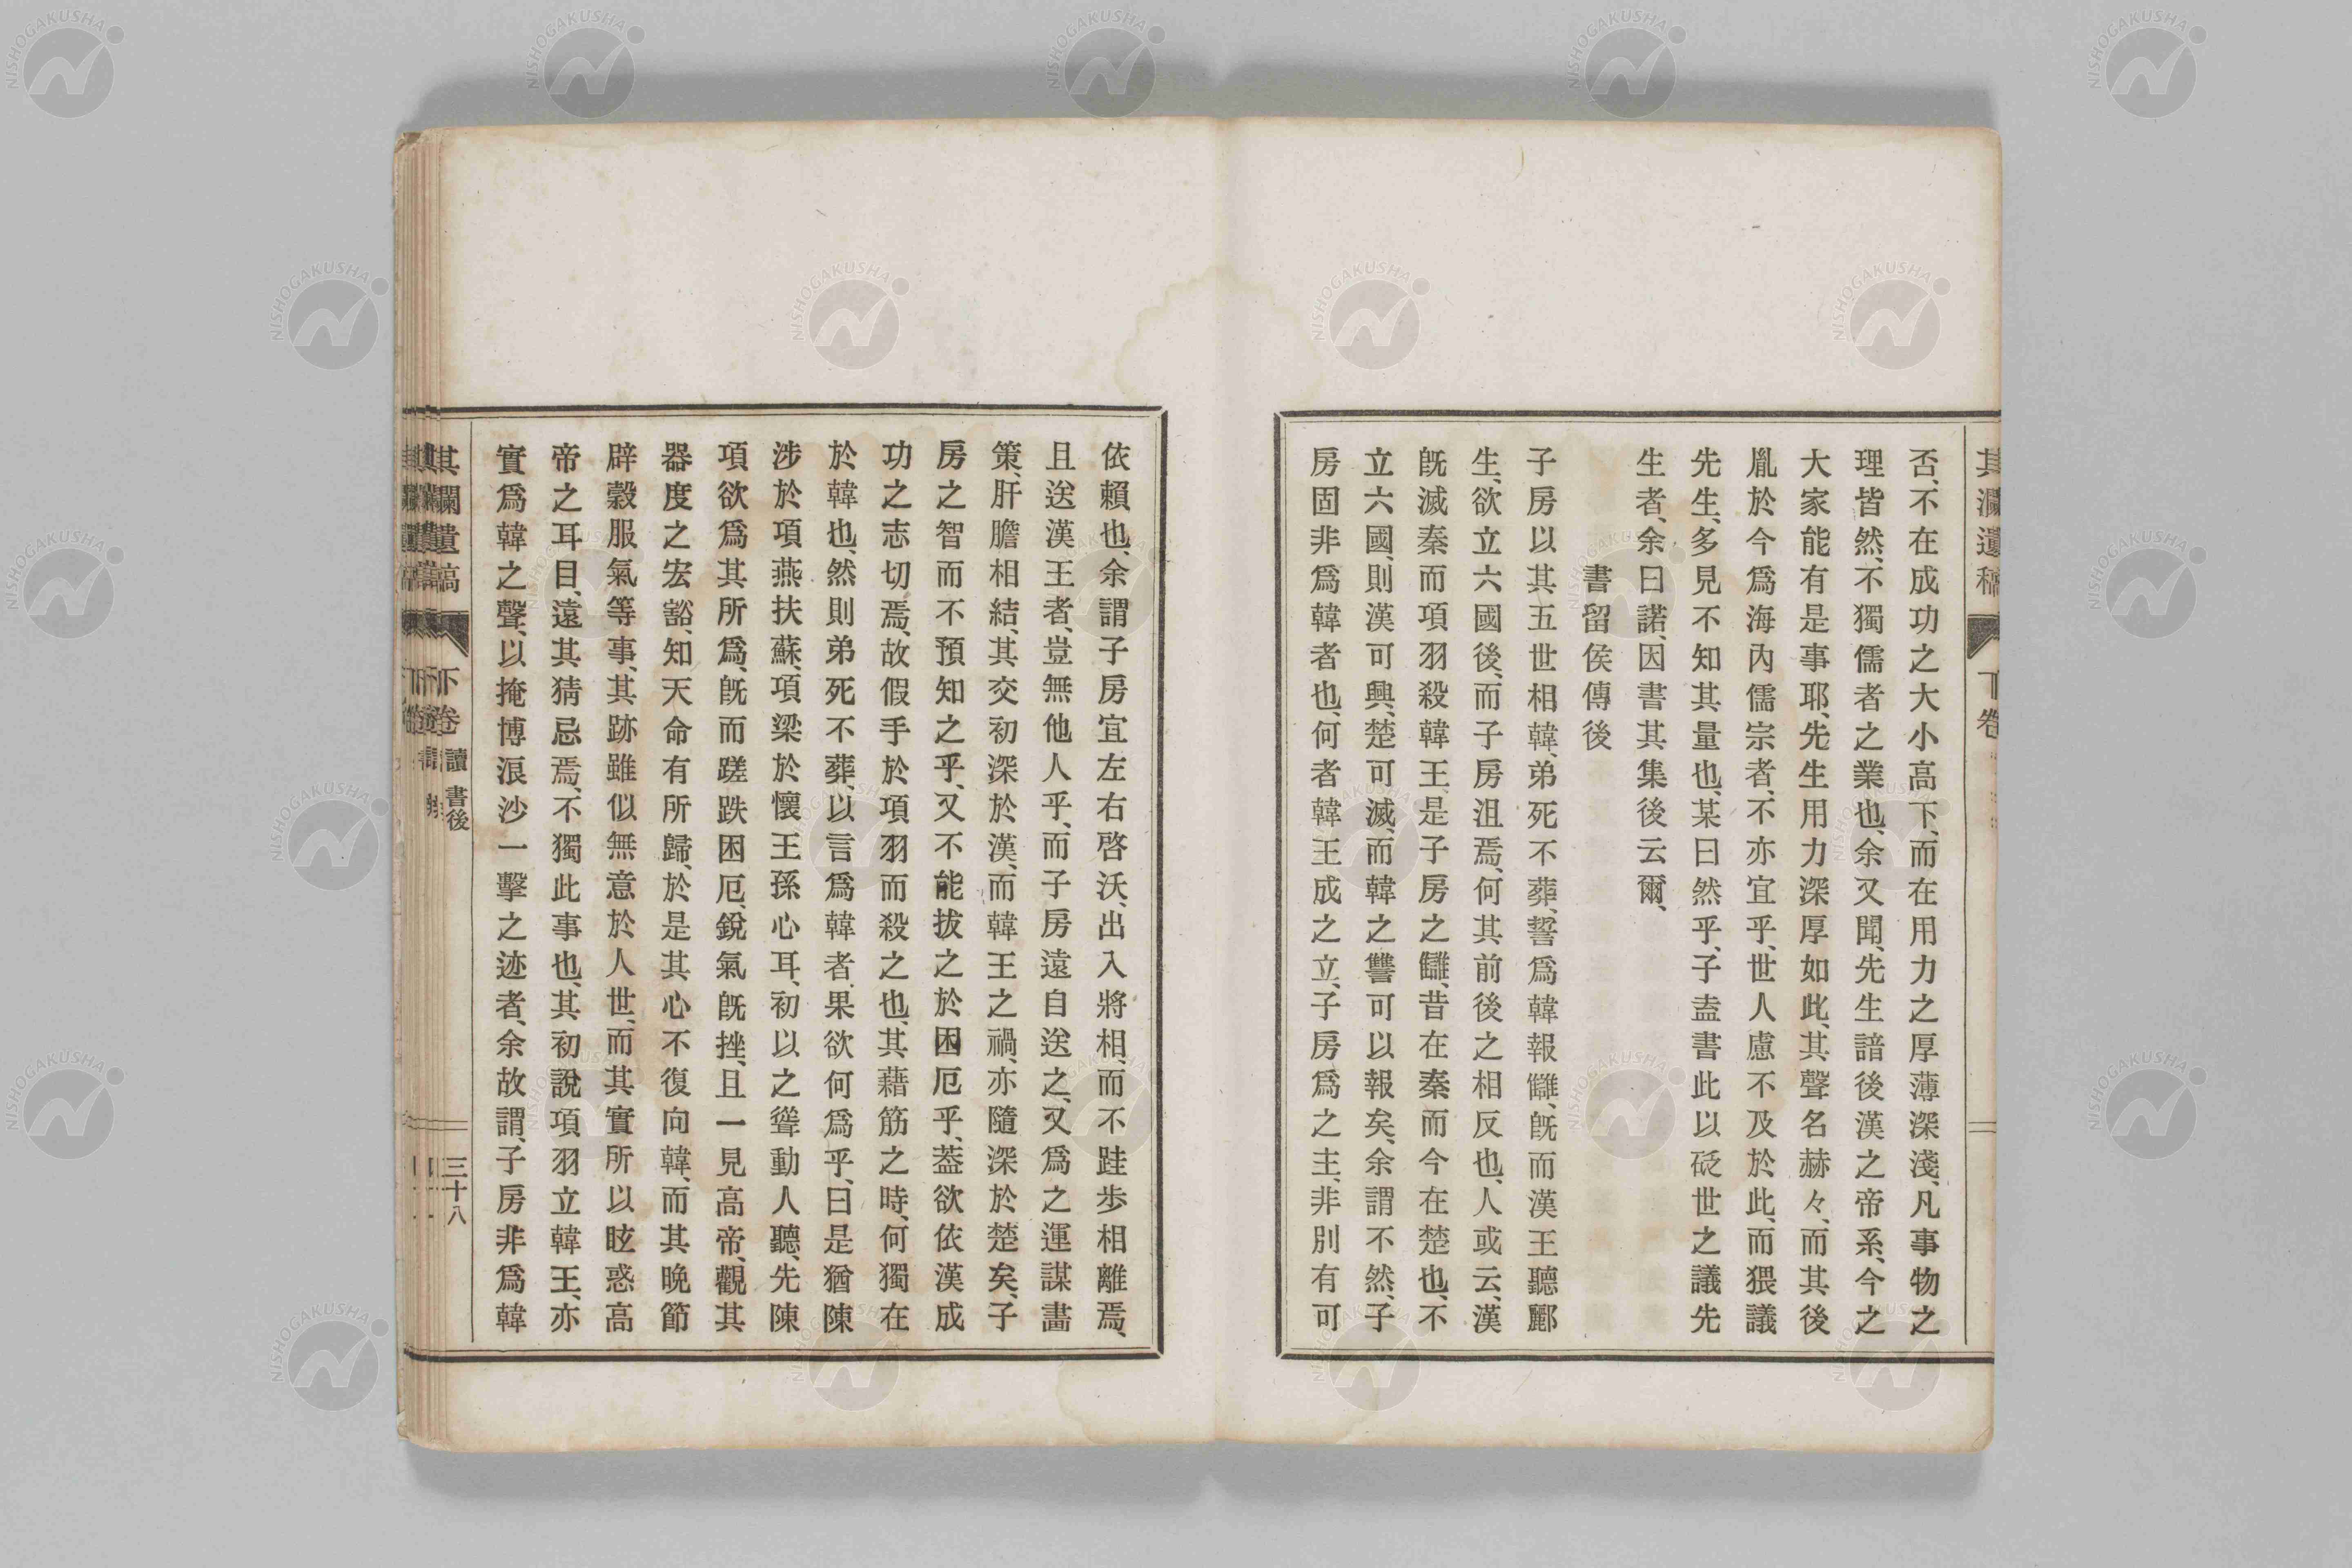 其瀾遺稿 下卷
否、不在成功之大小高下、而在用力之厚薄深淺、凡事物之
理皆然、不獨儒者之業也、余又聞、先生諳後漢之帝系、今之
大家能有是事耶、先生用力深厚如此、其聲名赫々、而其後
胤於今爲海內儒宗者、不亦宜乎、世人慮不及於此、而猥議
先生、多見不知其量也、某曰然乎、子盍書此以砭世之議先
生者、余曰諾、因書其集後云爾、
書留侯傳後
子房以其五世相韓、弟死不葬、誓爲韓報讎、旣而漢王聽酈
生、欲立六國後、而子房沮焉、何其前後之相反也、人或云、漢
旣滅秦而項羽殺韓王、是子房之讎、昔在秦而今在楚也、不
立六國、則漢可興、楚可滅、而韓之讐可以報矣、余謂不然、子
房固非爲韓者也、何者韓王成之立、子房爲之主、非別有可
依賴也、余謂子房宜左右啓沃、出入將相、而不跬步相離焉、
且送漢王者、豈無他人乎、而子房遠自送之、又爲之運謀畫
策、肝膽相結、其交初深於漢、而韓王之禍、亦隨深於楚矣、子
房之智而不預知之乎、又不能拔之於困厄乎、葢欲依漢成
功之志切焉、故假手於項羽而殺之也、其藉筋之時、何獨在
於韓也、然則弟死不葬、以言爲韓者、果欲何爲乎、曰是猶陳
涉於項燕扶蘇、項梁於懷王孫心耳、初以之聳動人聽、先陳
項欲爲其所爲、旣而蹉跌困厄、銳氣旣挫、且一見高帝、觀其
器度之宏豁、知天命有所歸、於是其心不復向韓、而其晩節
辟穀服氣等事、其跡雖似無意於人世、而其實所以眩惑高
帝之耳目、遠其猜忌焉、不獨此事也、其初說項羽立韓王、亦
實爲韓之聲、以掩博浪沙一擊之迹者、余故謂、子房非爲韓
其瀾遺稿 下卷 讀 書後 三十八
NISHOGAKUSHA